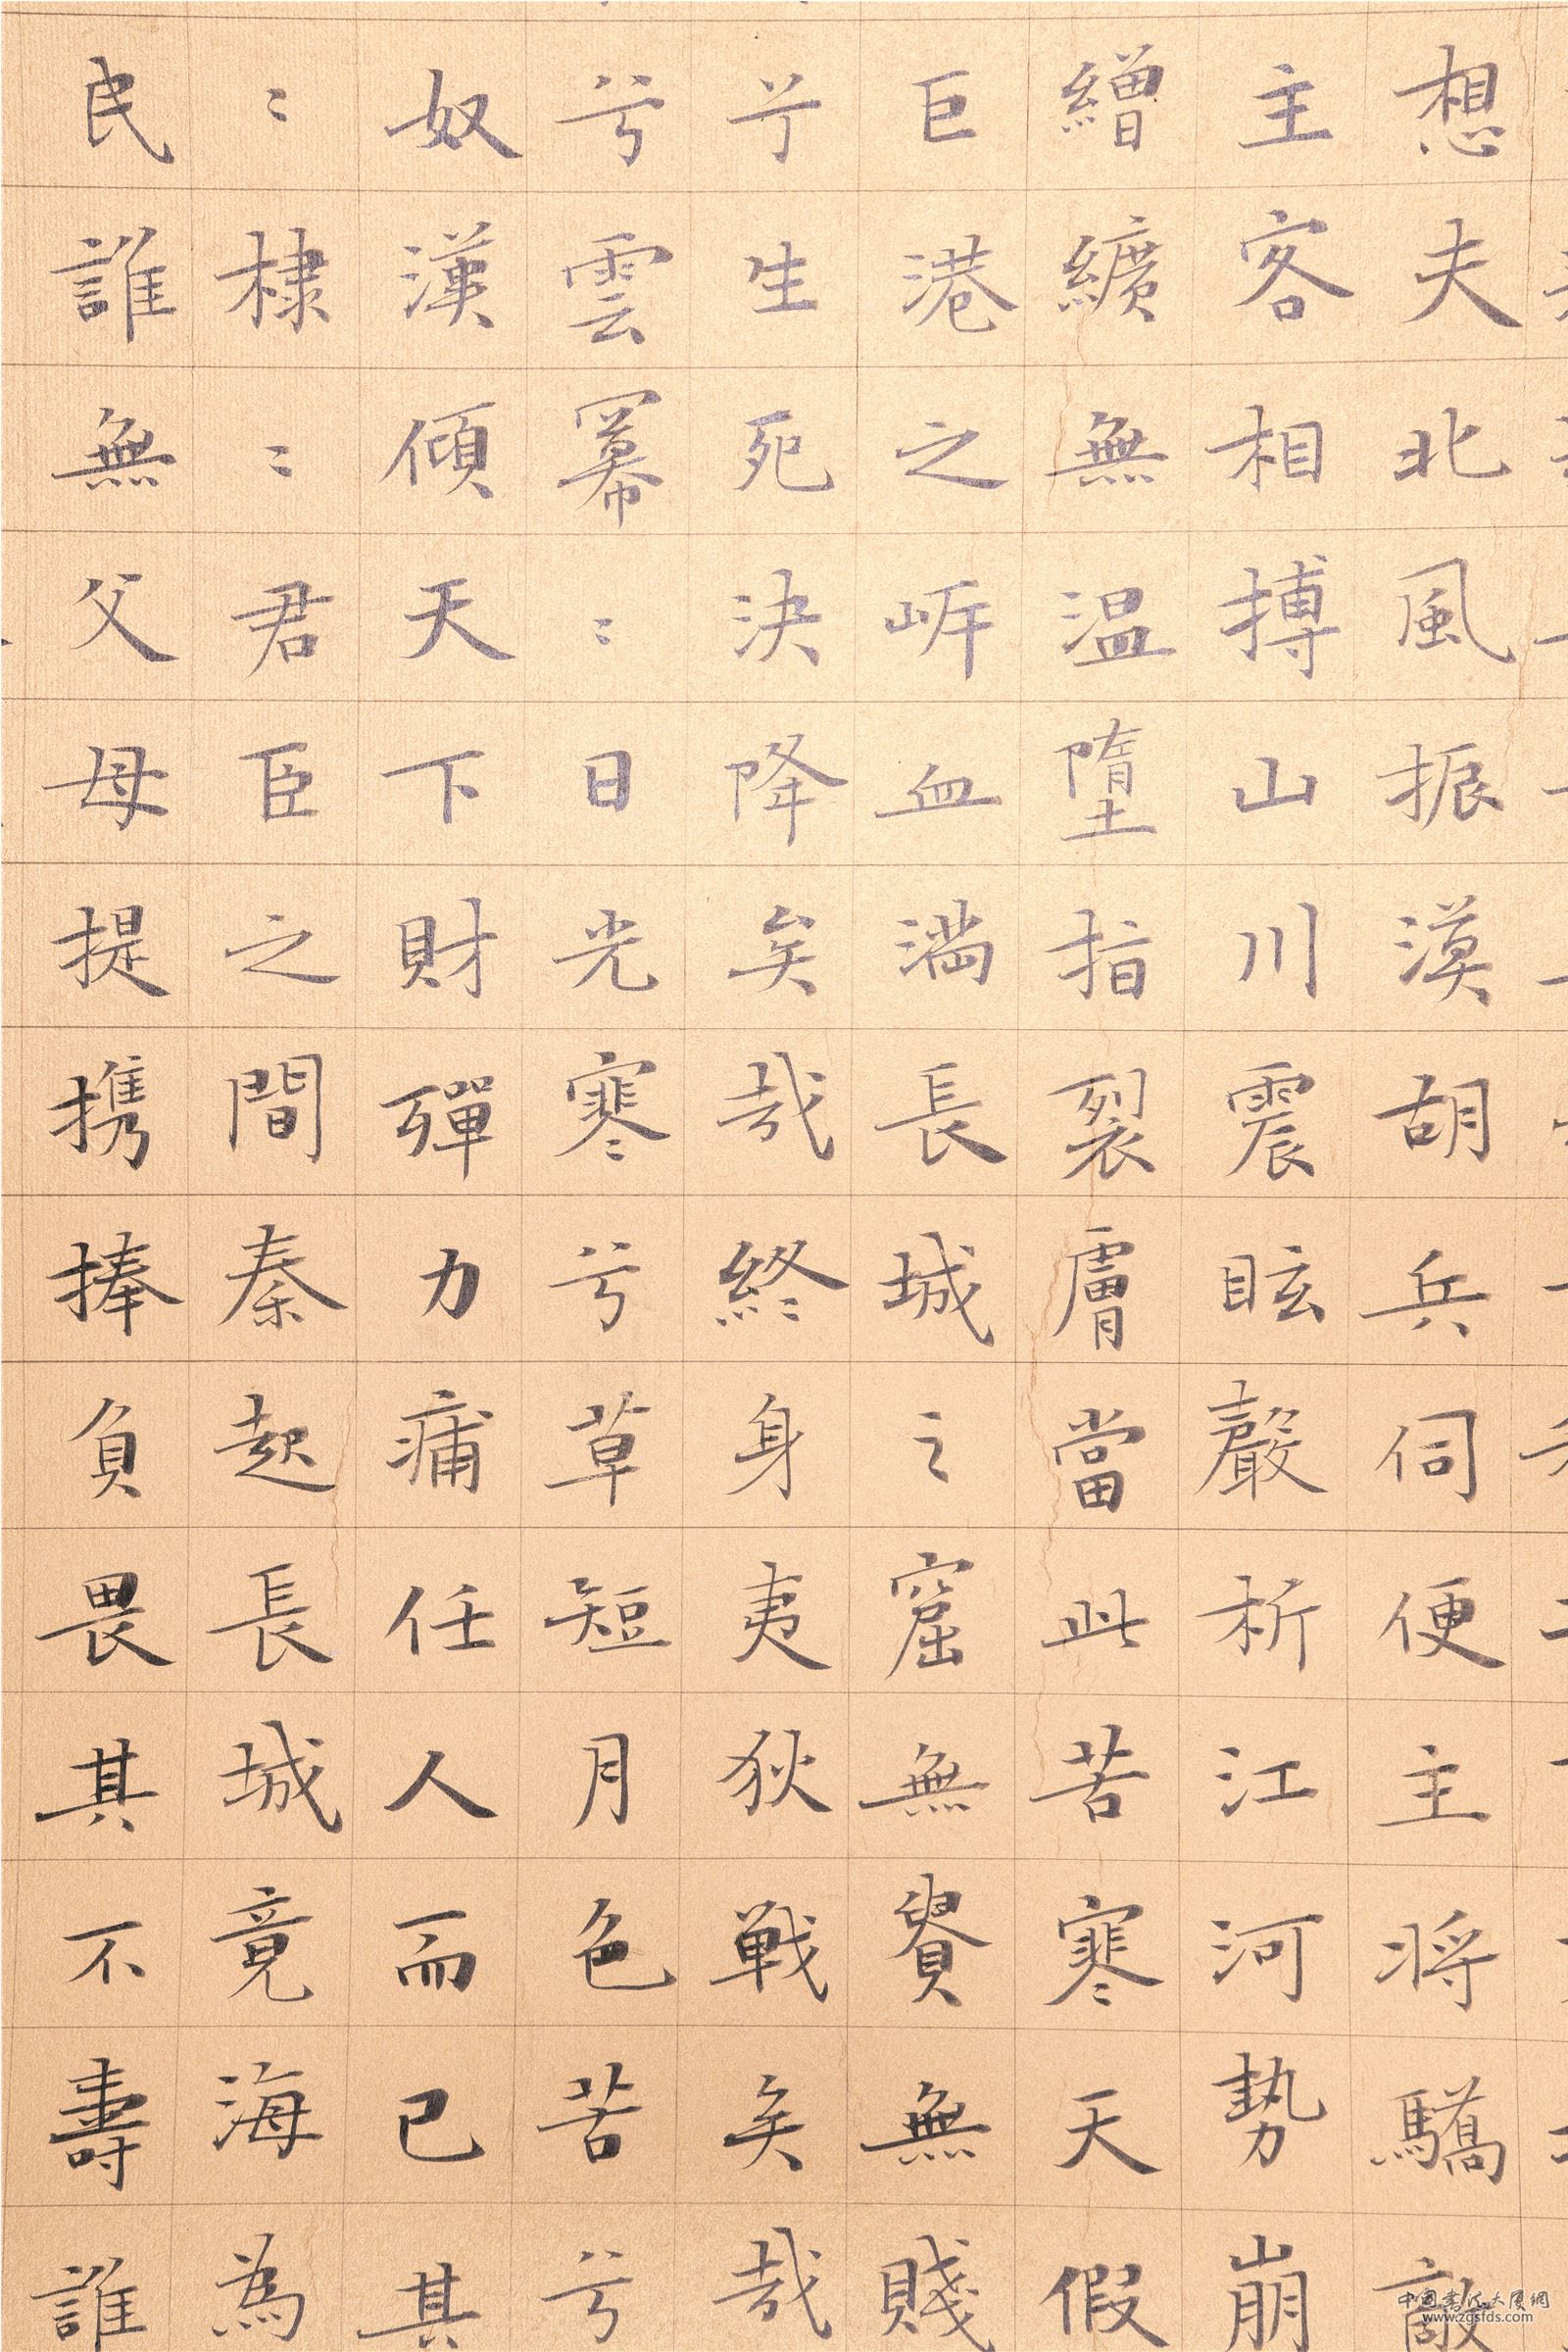 想夫北風振漠胡兵伺便主將驕敵
主客相搏山川震眩聲析江河勢崩
繒纊無温墮指裂膚當此苦寒天假
巨港之岸血滿長城之窟無貴無賤
兮生死決降矣哉終身夷狄戦矣哉
兮雲冪〻日光寒兮草短月色苦兮
奴漢傾天下財殫力痡任人而已其
〻棣〻君臣之間秦起長城竟海為
民誰無父母提携捧負畏其不壽誰
中国书法大展網
www.zgsfds.com